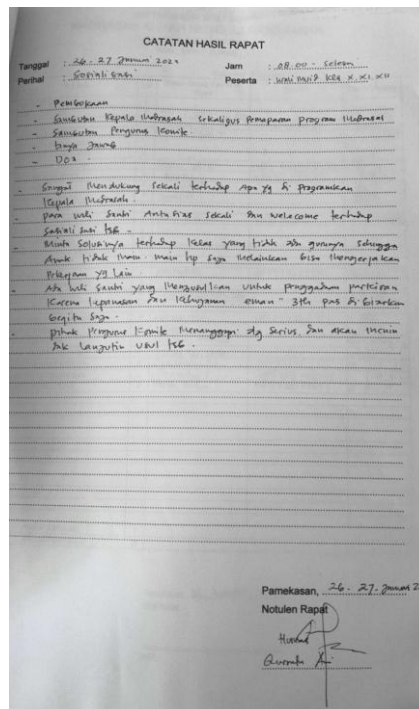 CATATAN HASIL RAPAT
Tanggal : 26 - 27 Januari 202
Jam : 08.00 - Selesai
Perihal : Sosialisasi
Peserta : Wali Murid Kls X. XI. XII
- Pembukaan
- Sambutan Kepala Madrasah sekaligus Pemaparan program Madrasah
- Sambutan Pengurus Komite
- tanya Jawab
- Doa .
- Sangat Mendukung sekali terhadap Apa yg di programkan
Kepala Madrasah .
- para wali santri Antusias sekali dan welcome terhadap
Sosialisasi tsb -
- Minta Solusinya terhadap kelas yang tidak ada gurunya sehingga
Anak tidak main-main hp saja melainkan bisa mengerjakan
Pekerjaan yg Lain .
- Ada wali santri yang mengusulkan untuk
Karena kepanasan dan kehujanan eman" 3th pas di biarkan
begitu saja .
- pihak Pengurus Komite menanggapi dg serius dan akan
Lanjutin usul tsb .
Pamekasan, 26 - 27 - Januari 2
Notulen Rapat